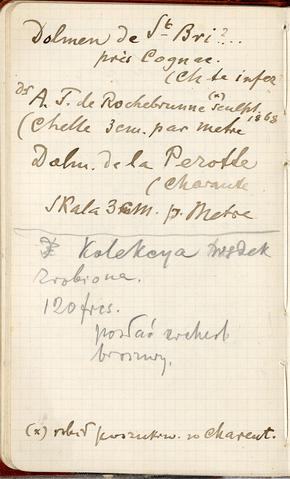 Dolmen de St Bri?...
près Cognac.
(Ch te infer
A. T. de Rochebrunne (x) sculpt. 1868
(Chelle 3 cm. par metre
Dolm. de la Perotte
(Charente
Skala 3 cM. p. Metre
Kolekcya
zrobiona.
120 frcs.
posłać
broszury.
(x) robił poszukiw. w Charent.